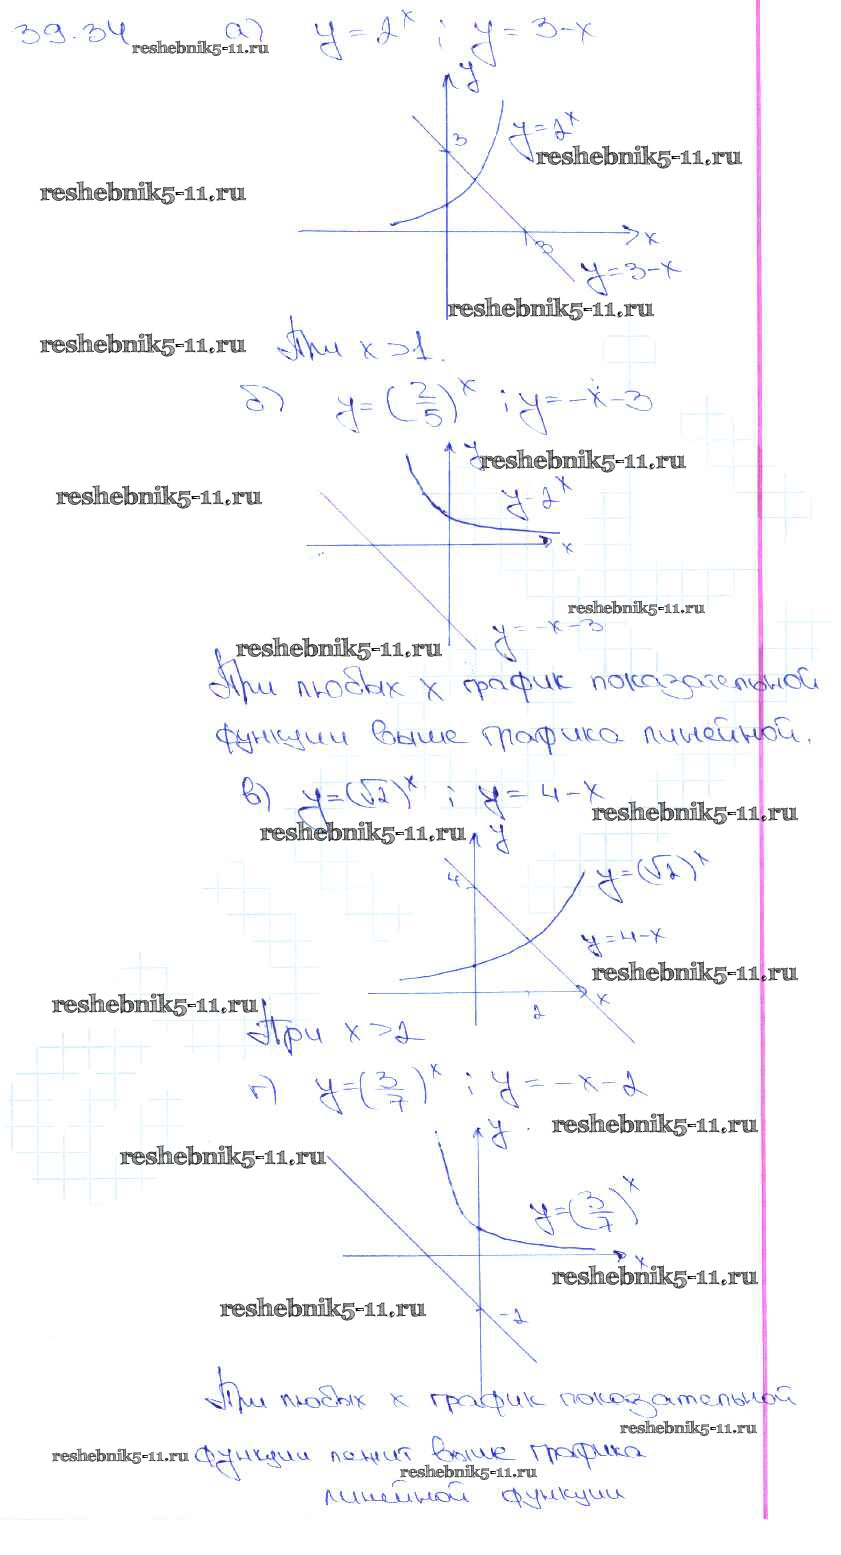 39.34 а) y = 2^x ; y = 3-x
reshebnik5-11.ru
y
3
y=2^x
reshebnik5-11.ru
reshebnik5-11.ru
x
3
y=3-x
reshebnik5-11.ru
reshebnik5-11.ru
При x>1.
б) y=(2/5)^x ; y=-x-3
y
reshebnik5-11.ru
reshebnik5-11.ru
y-2^x
x
reshebnik5-11.ru
y=-x-3
reshebnik5-11.ru
При любых x график показательной
функции выше графика линейной.
в) y=(√2)^x ; y= 4-x
reshebnik5-11.ru
reshebnik5-11.ru
y
4
y=(√2)^x
y=4-x
reshebnik5-11.ru
x
2
reshebnik5-11.ru
При x>2
г) y=(3/7)^x ; y=-x-2
y
reshebnik5-11.ru
reshebnik5-11.ru
y=(3/7)^x
x
reshebnik5-11.ru
reshebnik5-11.ru
-2
При любых x график показательной
reshebnik5-11.ru
reshebnik5-11.ru
функции лежит выше графика
reshebnik5-11.ru
линейной функции